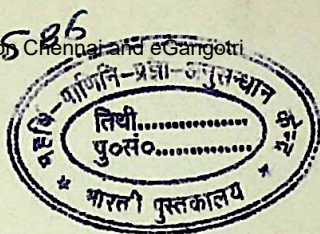 on Chennai and eGangotri
586
महर्षि-पाणिनि-प्रज्ञा-अनुसन्धान
तिथी..................
पु०सं०..................
* भारती पुस्तकालय *